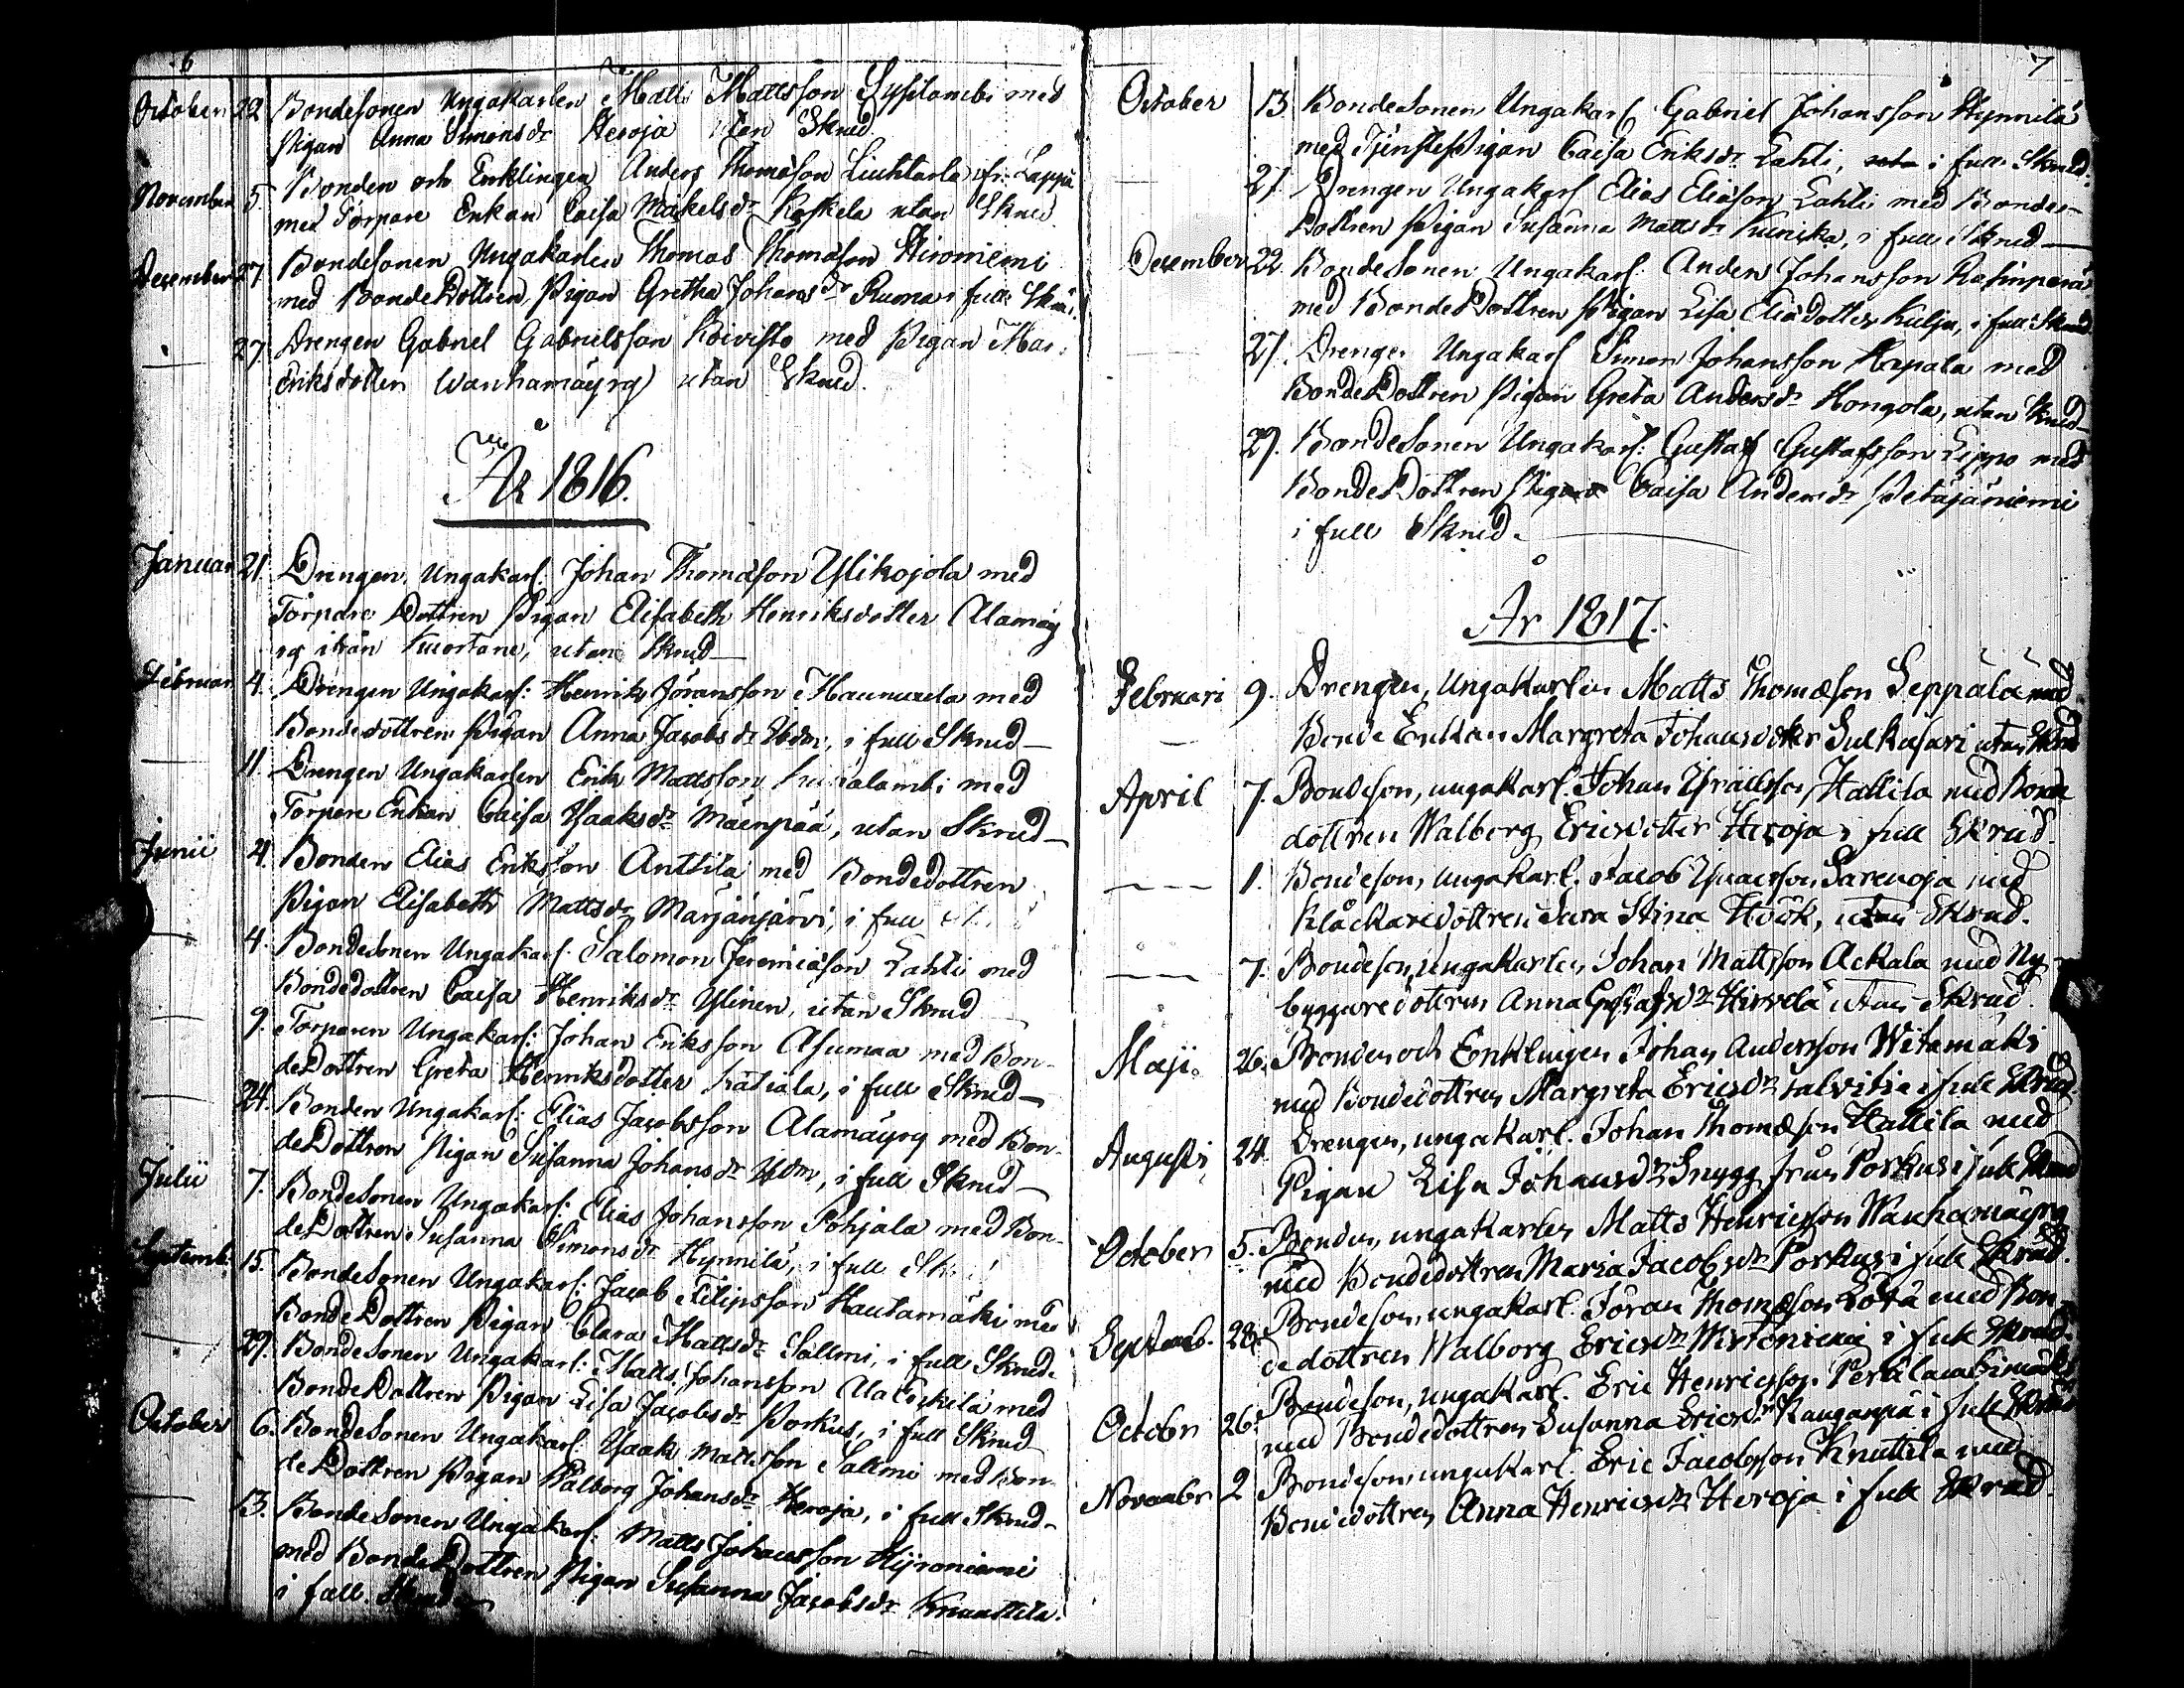 6
October 22 Bondesonen Ungakarlen Matts Mattsson Syysilambi med
Pigan Anna Simonsdr Heroja utan Skrud.
November 5. Bonden och Enklingen Anders Thomasson Liuhtarla fr. Lappo
med Torpare Enkan Caisa Mickelsdr Koskela utan Skrud
December 27 Bondesonen Ungakarlen Thomas Thomasson Hironiemi
med BondeDottren, Pigan Gretha Johansdr Ruma i full Skrud.
27. Drengen Gabriel Gabrielsson Koivisto med Pigan Mar.
Eriksdotter Wanhamäyry utan Skrud.
År 1816.
Januari 21. Drengen, Ungakarl: Johan Thomasson Ylikojola med
Torpare Dottren Pigan Elisabeth Henriksdotter Alamäy
ry ifrån Kuortane, utan Skrud
Februar 4. Drengen Ungakarl: Henrik Jöransson Haunuela med
Bondedottren Pigan Anna Jacobsdr, i full Skrud
11. Drengen Ungakarlen Erik Mattsson med
Torpare Enkan Caisa Isaaksdr Mäenpää, utan Skrud
Junii 4. Bonden Elias Eriksson Anttila med Bondedottren
Pigan Elisabeth Mattsdr Marjanjärvi, i full
4. Bondesonen Ungakarl. Salomon Jeremiasson Lahti med
Bondedottren Caisa Henriksdr Ylinen, utan Skrud
9. Torparen Ungakarl: Johan Eriksson Asumaa med Bon-
deDottren Greta Henriksdotter Kätiala, i full Skrud
24. Bonden Ungakarl: Elias Jacobsson Alamäyry med Bon-
deDottren Pigan Susanna Johansdr, i full Skrud
Julii 7. BondeSonen Ungakarl: Elias Johansson Pohjala med Bon-
deDottren Susanna Simonsdr Hynnilä, i full
Septemb: 15. BondeSonen Ungakarl: Jacob Filipsson Hautamäki med
BondeDottren Pigan Clara Mattsdr Sallmi, i full Skrud.
29. BondeSonen Ungakarl: Matts Johansson Ala med
BondeDottren Pigan Lisa Jacobsdr Porkus, i full Skrud
October 6. BondeSonen Ungakarl: Isaak Mattsson Sallmi med Bon-
deDottren Pigan Walborg Johansdr Heroja, i full Skrud-
13. BondeSonen Ungakarl: Matts Johansson Hijroniemi
med BondeDottren Pigan Susanna Jacobsdr Knuuttila.
i full Skrud
7
October 13. BondeSonen Ungakarl Gabriel Johansson Hynnilä
med TjenstePigan Caisa Eriksdr Lahti, i full Skrud.
27. Drengen Ungakarl Elias Eliasson Lahti med Bonde-
Dottren Pigan Susanna Mattsdr Kuinika, i full Skrud
December 22 BondeSonen Ungakarl: Anders Johansson Rasinperä
med BondeDottren Pigan Lisa Eliædotter Kulju, i full Skrud
27. Drengen Ungakarl Simon Johansson Karpala med
BondeDottren Pigan Greta Andersdr Hongola, utan Skrud
29. BondeSonen Ungakarl: Gustaf Gustafsson Lippo med
BondeDottren Pigan Caisa Andersdr Petäjäniemi
i full Skrud.
År 1817.
Februari 9. Drengen, Ungakarlen Matts Thomæson Seppälä med
Bonde Enkan Margreta Johansdoter Sulkasari utan Skrud
April 7. Bondeson, ungakarl. Johan Israelsson Hallila med Bonde
dottren Walborg Ericsdotter Heroja i full Skrud.
1. Bondeson, ungakarl. Jacob Sarenoja med
Klåckaredottren Sara Stina Höök, utan Skrud.
7. Bondeson, ungakarlen Johan Mattsson Ackala med Ny-
byggaredottren Anna Gustafsdr Hirvelä utan Skrud.
Maji. 26. Bonden och Enklingen Johan Andersson Witamäki
med Bondedottren Margreta Ericsdr Salvitie i full Skrud.
Augusti 24. Drengen, ungakarl. Johan Thomæson Hallila med
Pigan Lisa Johansdr Snygg från Porkus i full Skrud
October 5. Bonden, ungakarlen Matts Henricsson Wanhamäyry
med Bondedottren Maria Jacobsdr Porkus i full Skrud.
Septemb. 28. Bondeson, ungakarl. Jöran Thomæson med Bon-
dedottren Walborg Ericsdr i full Skrud.
Octobr 26. Bondeson, ungakarl. Eric Henricsson
med Bondedottren Susanna Ericsdr i full Skrud
Novembr 2 Bondeson, ungakarl. Eric Jacobsson Knuttila med
Bondedottren Anna Henricsdr Heroja i full Skrud.